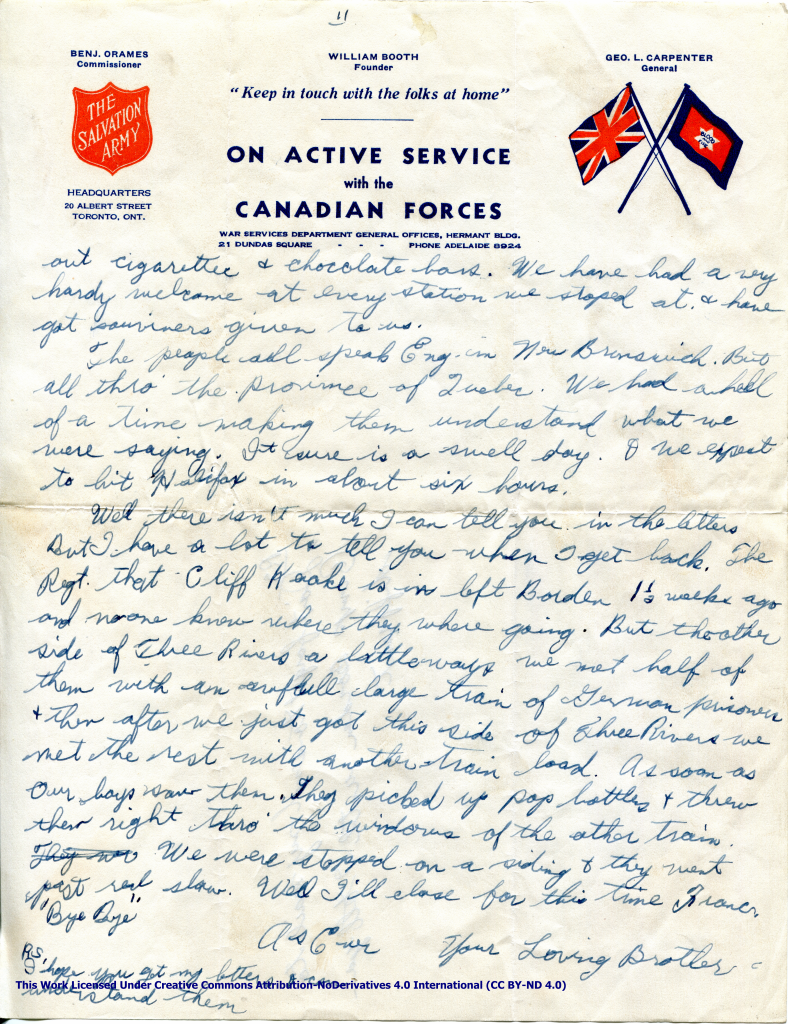 11
BENJ. ORAMES
Commissioner
WILLIAM BOOTH
Founder
GEO. L. CARPENTER
General
"Keep in touch with the folks at home"
THE
SALVATION
ARMY
BLOOD
FIRE
ON ACTIVE SERVICE
with the
CANADIAN FORCES
HEADQUARTERS
20 ALBERT STREET
TORONTO, ONT.
WAR SERVICES DEPARTMENT GENERAL OFFICES, HERMANT BLDG.
21 DUNDAS SQUARE - - - PHONE ADELAIDE 8924
out cigarettee & chocolate bars. We have had a very
hardy welcome at every station we stoped at. & have
got souviners given to us.
The people all speak Eng. in New Brunswick. But
all thro' the Province of Quebec. We had a hell
of a time making them understand what we
were saying. It sure is a swell day. & we expect
to hit Halifax in about six hours.
Well there isn't much I can tell you in the letters
But I have a lot to tell you when I get back. The
Regt. that Cliff is in left Borden 1½ weeks ago
and noone knew where they where going. But the other
side of Three Rivers a littleways we met half of
them with an awfull large train of German prisoners
& then after we just got this side of Three Rivers we
met the rest with another train load. As soon as
our boys saw them. They picked up pop bottles & threw
them right thro' the windows of the other train.
They We were stopped on a siding & they went
past real slow. Well I'll close for this time
"Bye Bye"
As Ever Your Loving Brother
P.S.
I hope you get my letters &
understand them
This Work Licensed Under Creative Commons Attribution-NoDerivatives 4.0 International (CC BY-ND 4.0)